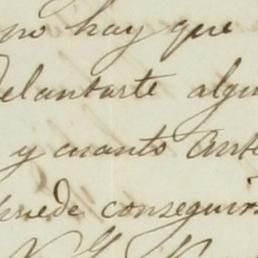 no hay que
delantarte algu
y cuanto ante
puede conseguirs